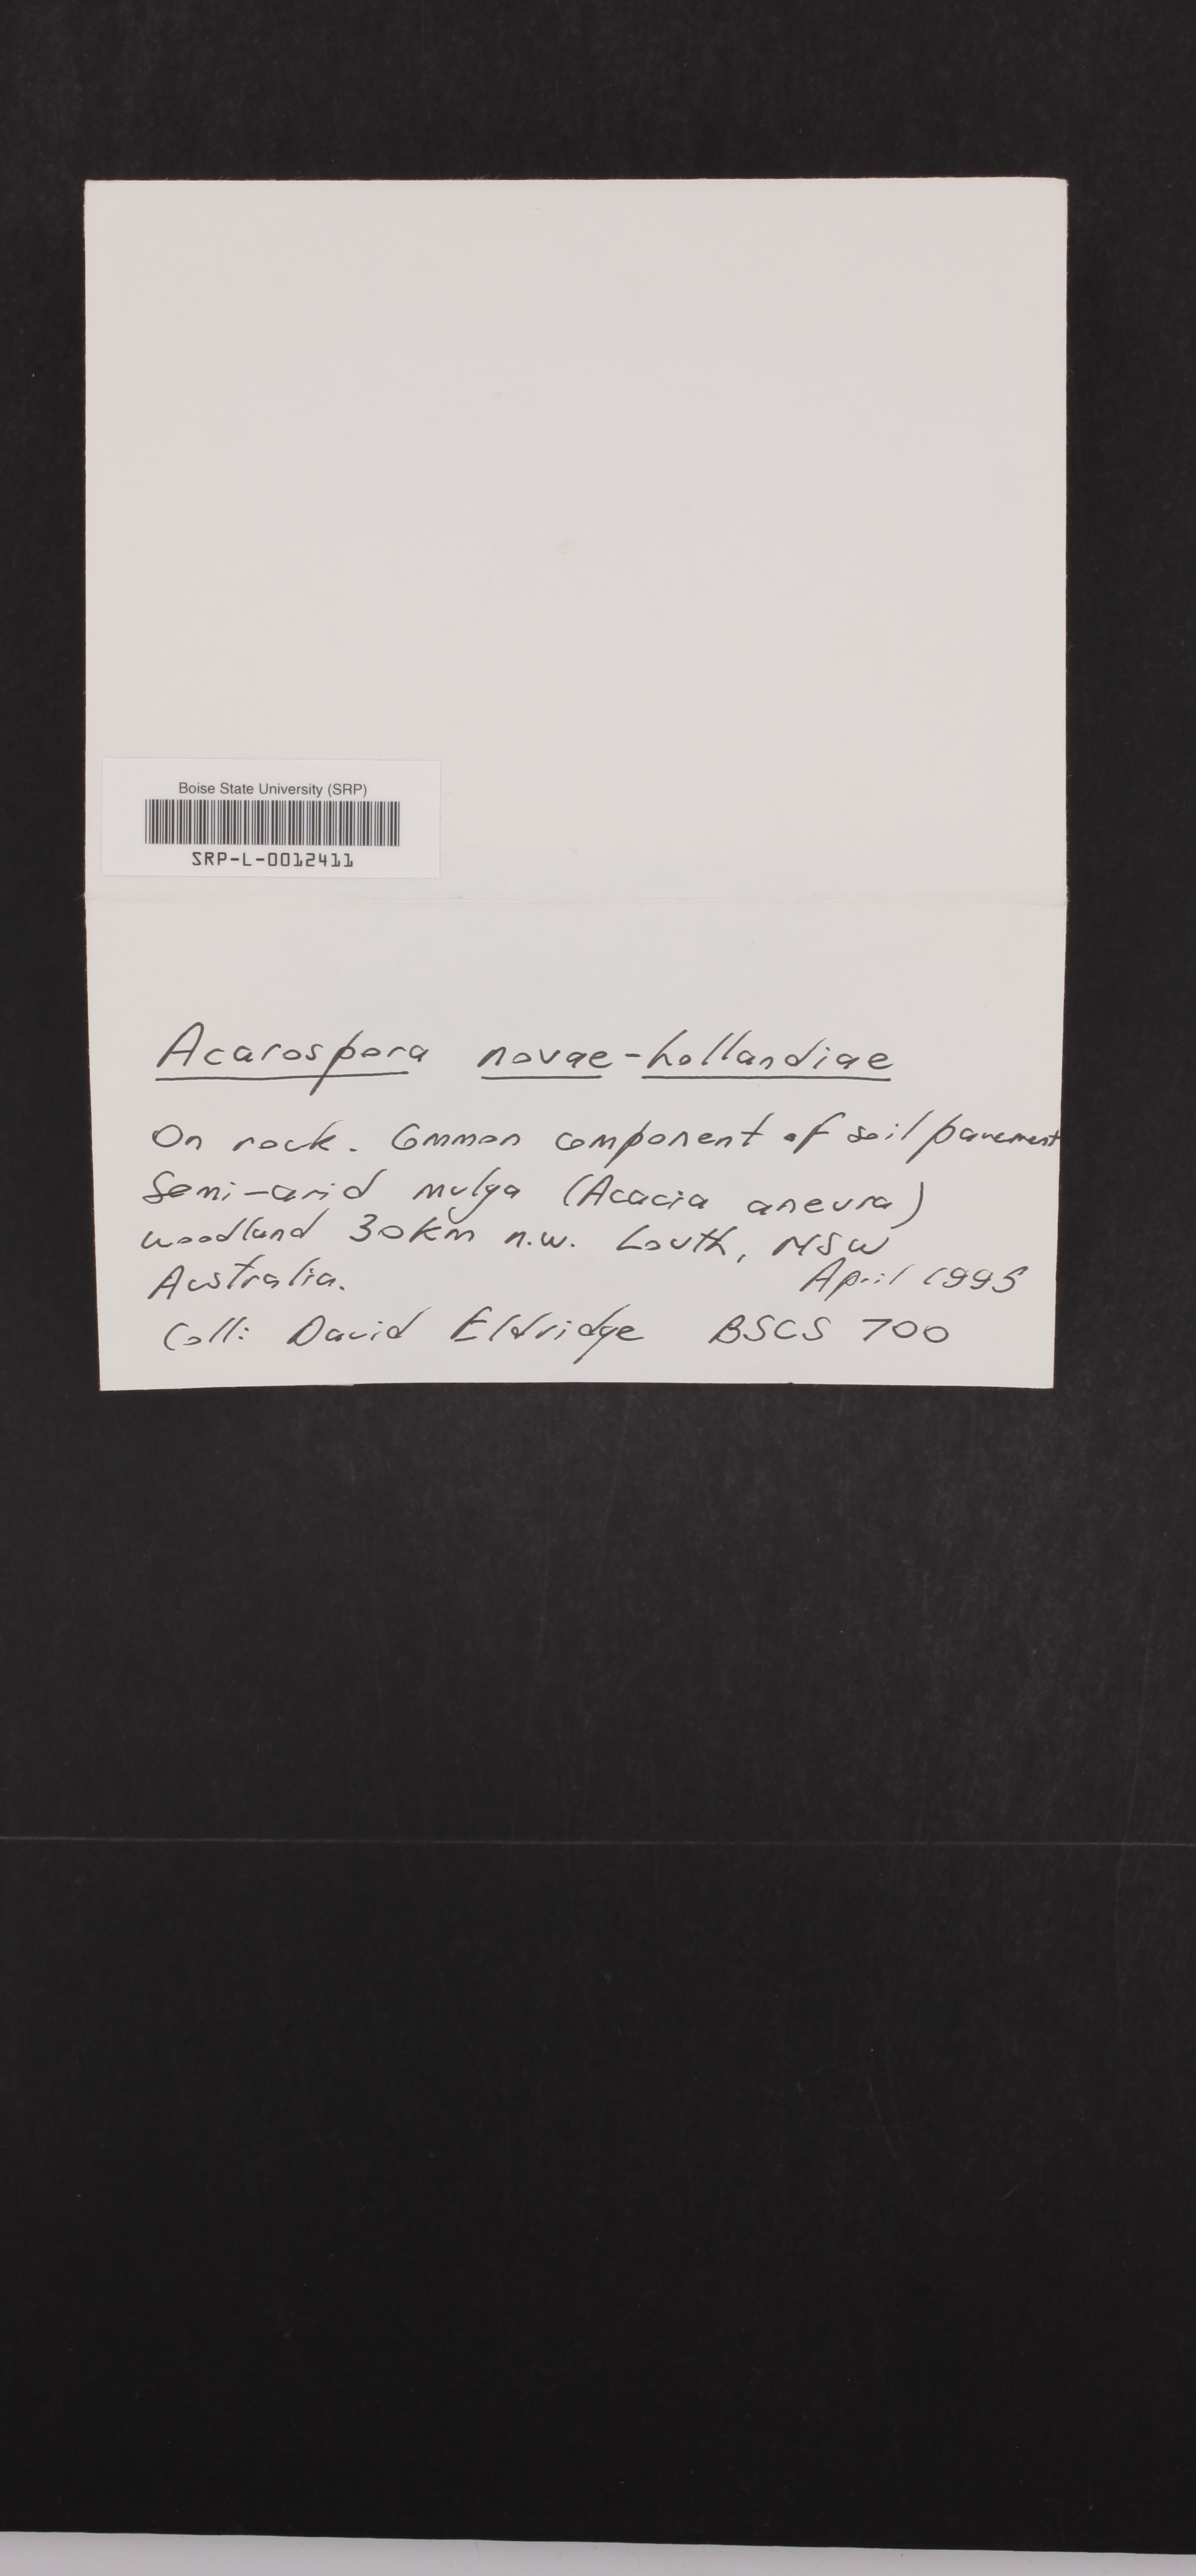 Boise State University (SRP)
SRP-L-0012411
Acarospora novae-hollandiae
On rock. Common component of soil pavement
Semi-arid mulga (Acacia aneura)
woodland 30km n.w. Louth, NSW
Australia. April 1995
Coll: David Eldridge BSCS 700